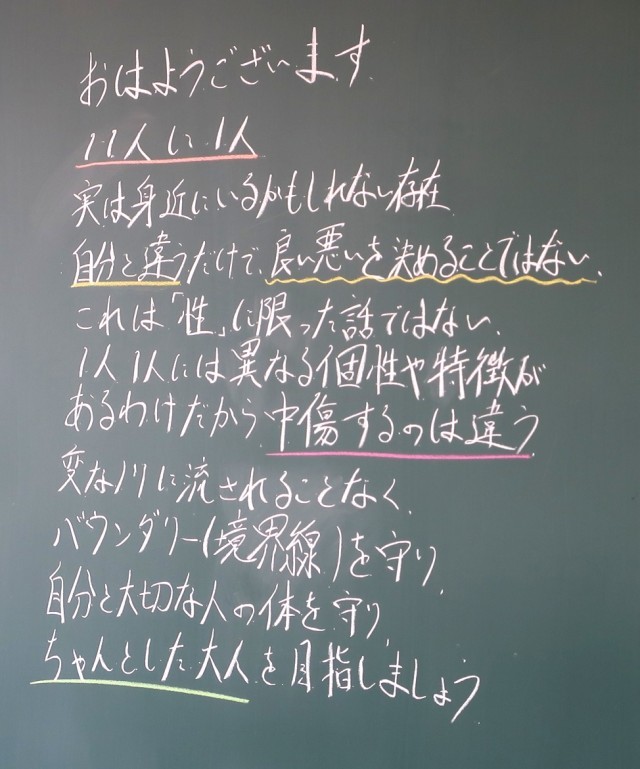 おはようございます
11人に1人
実は身近にいるかもしれない存在
自分と違うだけで、良い悪いを決めることではない、
これは「性」に限った話ではない、
1人1人には異なる個性や特徴が
あるわけだから中傷するのは違う
変なノリに流されることなく、
バウンダリー(境界線)を守り、
自分と大切な人の体を守り、
ちゃんとした大人を目指しましょう